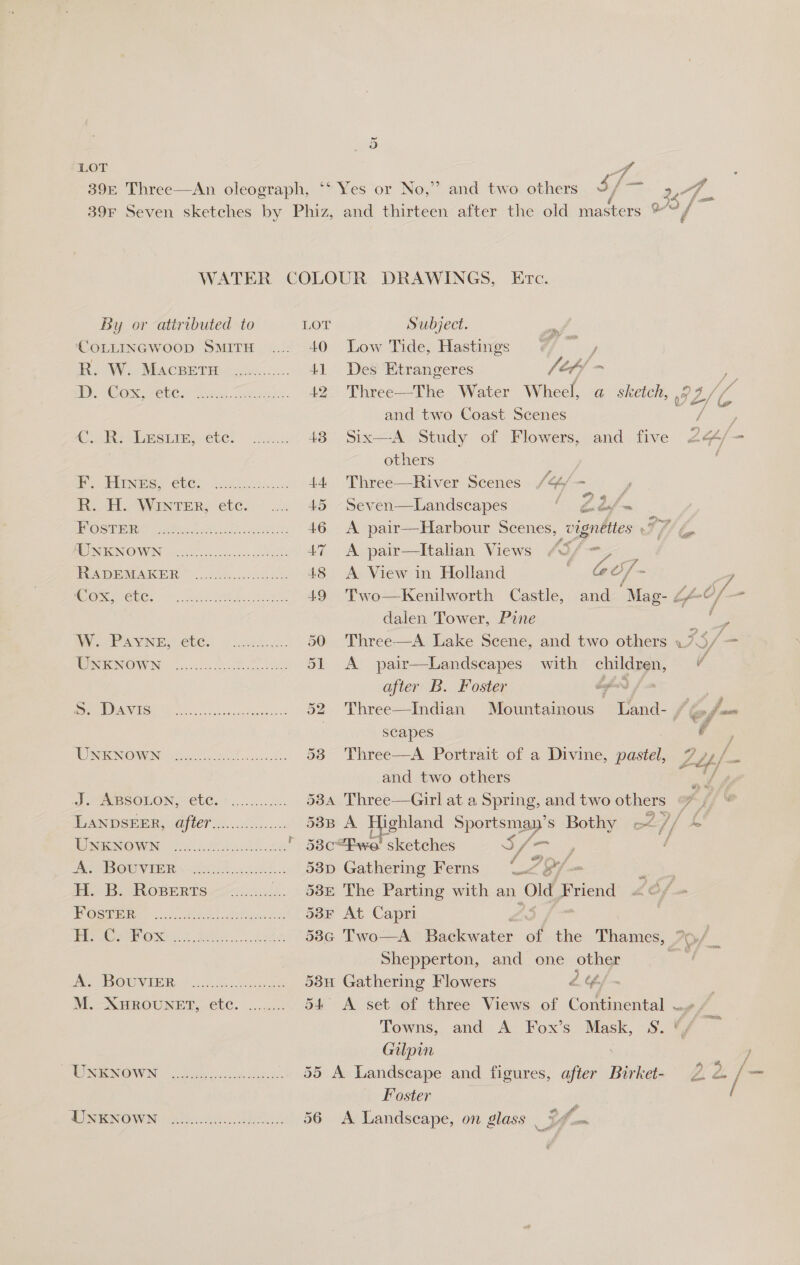 5
LOT
39E Three—An oleograph, “ Yes or No,” and two others 5/-
39F Seven sketches by Phiz, and thirteen after the old masters
WATER COLOUR DRAWINGS, ETC.
By or attributed to LOT Subject.
COLLINGWOOD SMITH .... 40 Low Tide, Hastings
R. W. MACBETH ............ 41 Des Etrangeres
D. COX, etc. .................. 42 Three—The Water Wheel, a sketch,
and two Coast Scenes
C. R. LESLIE, etc. ........ 43 Six—A Study of Flowers, and five
others
F. HINES, etc. ............... 44 Three—River Scenes
R. H. WINTER, etc. .... 45 Seven—Landscapes
FOSTER ........................ 46 A pair—Harbour Scenes, vignettes
UNKNOWN .................... 47 A pair—Italian Views
RADEMAKER ................ 48 A View in Holland
COX, etc. ...................... 49 Two—Kenilworth Castle, and Mag-
dalen Tower, Pine
W. PAYNE, etc. ............ 50 Three—A Lake Scene, and two others
UNKNOWN .................... 51 A pair—Landscapes with children,
after B. Foster
S. DAVIS ...................... 52 Three—Indian Mountainous Land-
scapes
UNKNOWN .................... 53 Three—A Portrait of a Divine, pastel,
and two others
J. ABSOLON, etc. ............ 53A Three—Girl at a Spring, and two others
LANDSEER, after............... 53B A Highland Sportsman’s Bothy
UNKNOWN .................... 53C Two sketches 5/-
A. BOUVIER .................. 53D Gathering Ferns
H. B. ROBERTS ............ 53E The Parting with an Old Friend
FOSTER ........................ 53F At Capri
H. C. FOX .................... 53G Two—A Backwater of the Thames,
Shepperton, and one other
A. BOUVIER .................. 53H Gathering Flowers
M. XHROUNET, etc. ........ 54 A set of three Views of Continental
Towns, and A Fox’s Mask, S.
Gilpin
UNKNOWN .................... 55 A Landscape and figures, after Birket- 22/-
Foster
UNKNOWN .................... 56 A Landscape, on glass